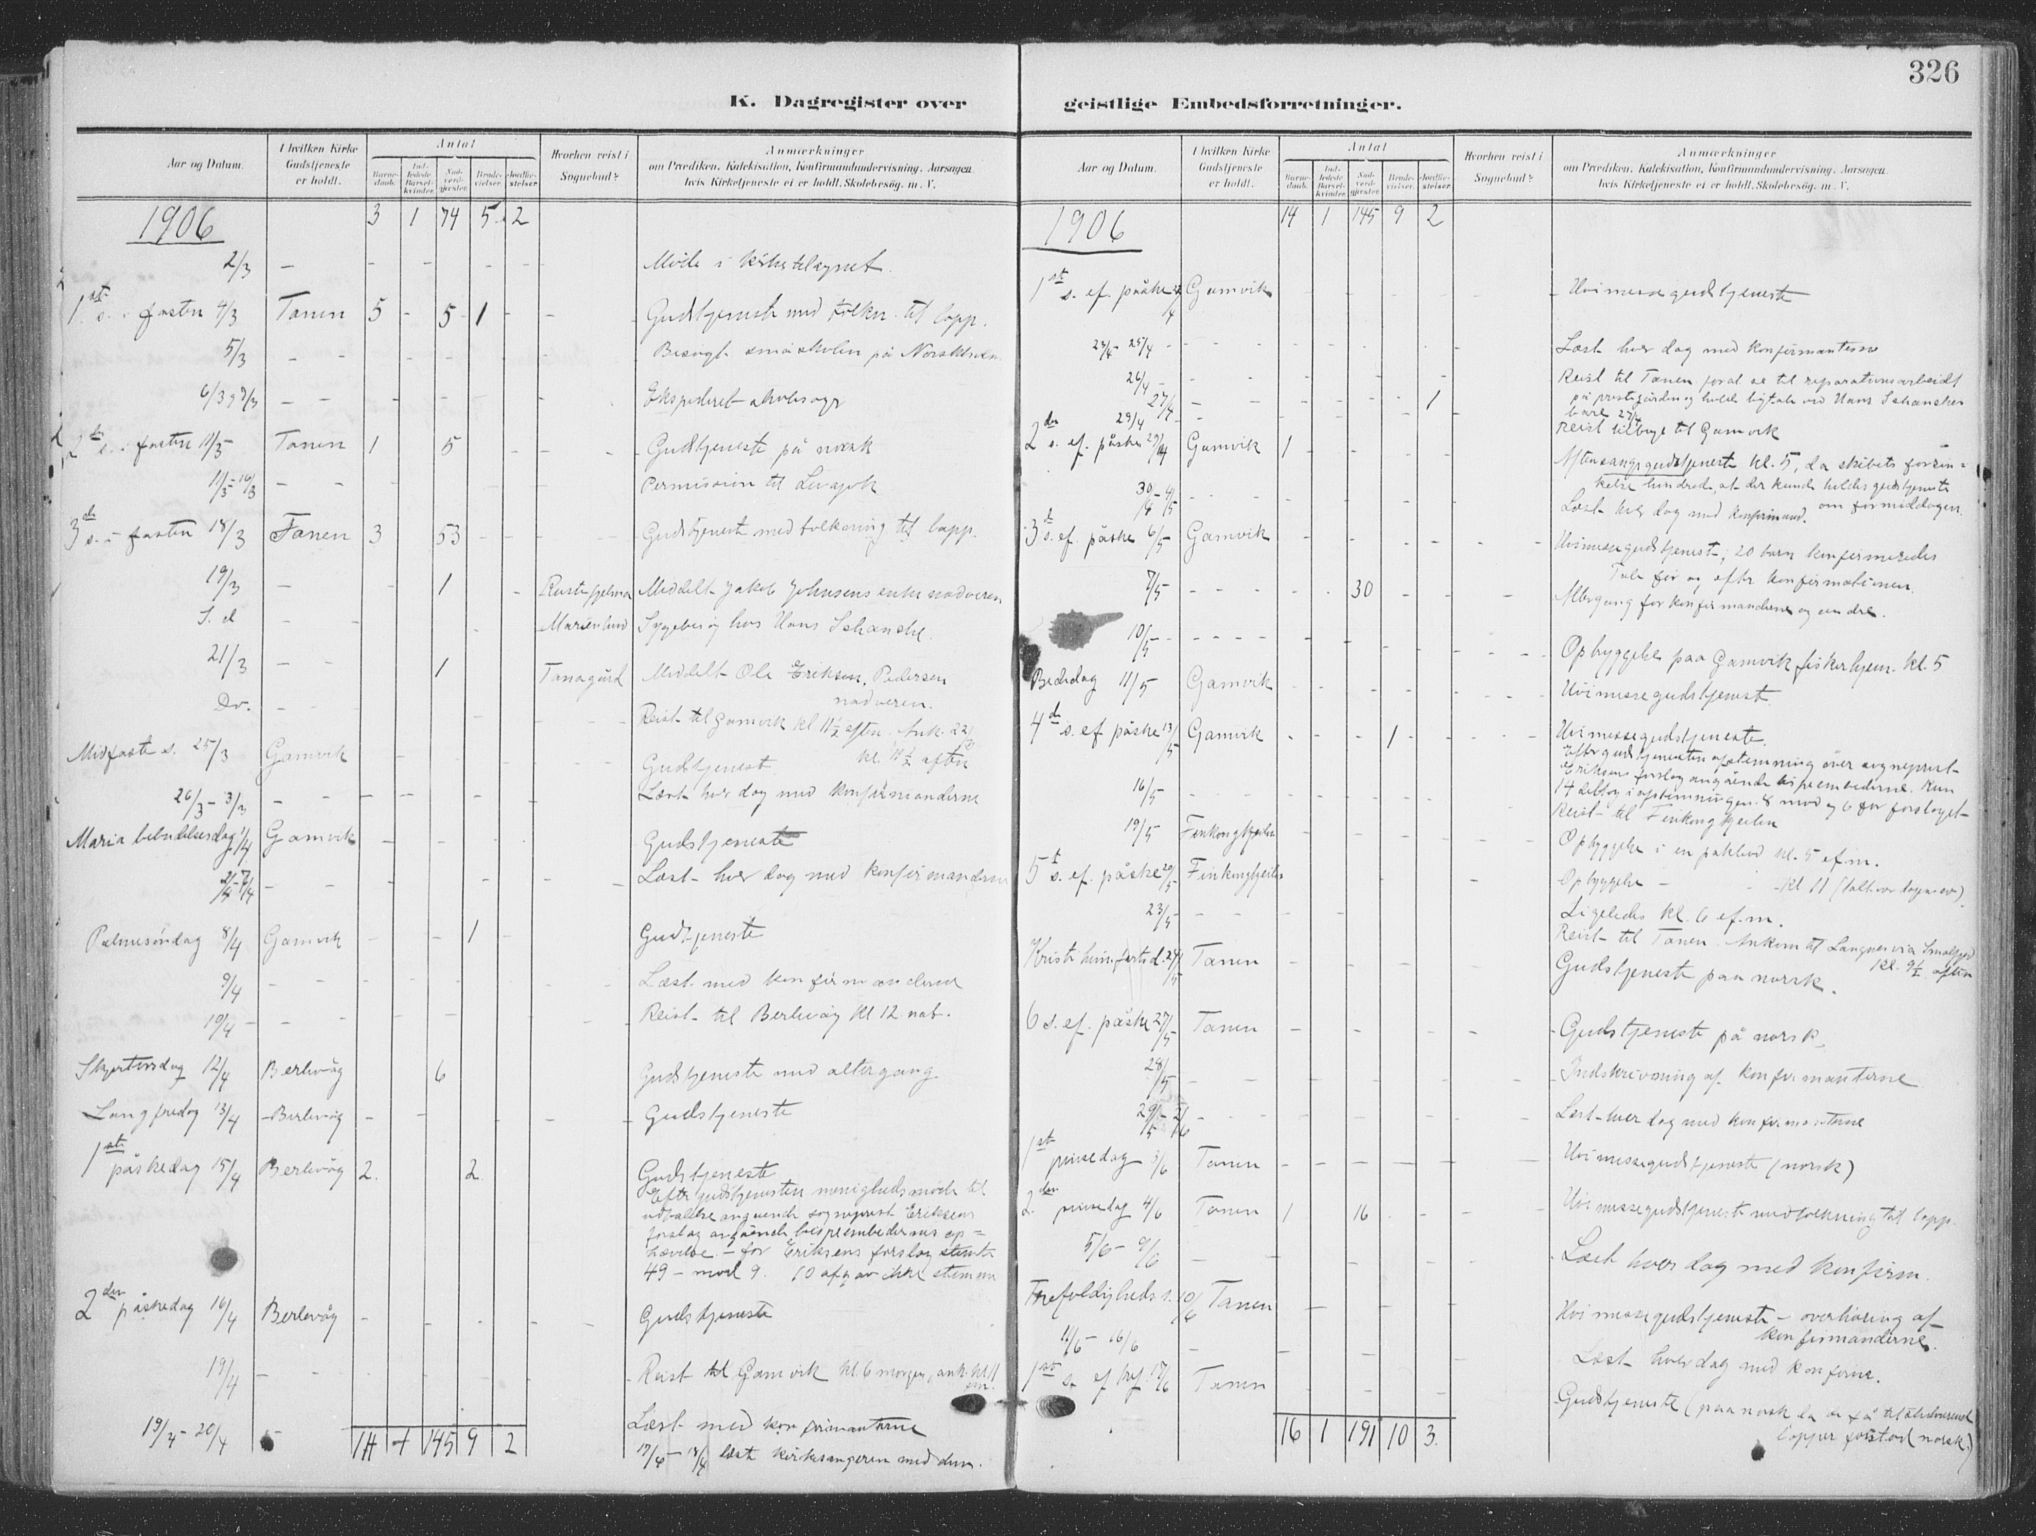 326
K. Dagregister over
geistlige Embedsforretninger.
Aar og Datum.
I hvilken Kirke Gudstjeneste er holdt.
Antal
Barnedaab.
Indledede Barselkvinder.
Nadverdgjæster.
Brudevielser.
Jordfæstelser.
Hvorhen reist i Sognebud?
Anmærkninger
om Prædiken, Katekisation, Konfirmandundervisning, Aarsagen
hvis Kirketjeneste ei er holdt, Skolebesøg, m. V.
1906 3 1 74 5 2
2/3 - Møde i
1ste s. i fasten 4/3 Tanen 5 - 5 1 - - Gudstjeneste med tolkn. til lapp.
5/3 - - Besøgt småskolen på
6/3 og 7/3 - - Ekspederet
2den s. i fasten 11/3 Tanen 1 5 - Gudstjeneste på norsk
11/3 - 16/3 - - Permission til Levajok
3die s. i fasten 18/3 Tanen 3 53 Gudstjeneste med tolkning til lapp.
19/3 - 1 Meddelt Jakob Johnsens enke nadveren
S. d - - Marienlund Sygebesøg hos Hans Schanche.
21/3 - - 1 Tanagård Meddelt Ole Eriksen Pedersen
nadveren.
Do. - - Reist til Gamvik kl 11½ aften. Ank. 22/3
kl. 11½ aften
Midfaste s. 25/3 Gamvik Gudstjenest
26/3 - 3/3 - - Læst hver dag med konfirmanderne
Maria bebudelsesdag 1/4 Gamvik Gudstjeneste
2/4 - 7/4 - - Læst hver dag med konfirmanderne
Palmesøndag 8/4 Gamvik 1 Gudstjeneste
9/4 - - Læst med konfirmanderne
10/4 - - Reist til Berlevåg kl 12 nat.
Skjærtorsdag 12/4 Berlevåg 6 Gudstjeneste med altergang
Langfredag 13/4 Berlevåg - - Gudstjeneste
1ste påskedag 15/4 Berlevåg 2 2 Gudstjeneste
Efter gudstjenesten menighedsmøde til
udtalelse angående sogneprest Eriksens
forslag angående bispeembedernes op=
hævelse - for Eriksens forslag stemte
49 - mod 9. 10 afgav ikke stemme
2den påskedag 16/4 Berlevåg - - Gudstjeneste
19/4 - - Reist til Gamvik kl. 6 morgen, ank. kl. 11
em.
19/4 - 20/4 - 14 1 145 9 2 Læst med konfirmanterne
17/4 - 18/4 læste kirkesangeren med dem.
Aar og Datum.
I hvilken Kirke Gudstjeneste er holdt.
Antal
Barnedaab.
Indledede Barselkvinder.
Nadverdgjæster.
Brudevielser.
Jordfæstelser.
Hvorhen reist i Sognebud?
Anmærkninger
om Prædiken, Katekisation, Konfirmandundervisning, Aarsagen
hvis Kirketjeneste ei er holdt, Skolebesøg, m. V.
1906 14 1 145 9 2
1ste s. ef. påske 22/4 Gamvik - Høimessegudstjeneste
23/4 - 25/4 - - Læst hver dag med konfirmanterne
26/4 - - Reist til Tanen for at se til reparationsarbeidet
27/4 - 1 på prestegården og holdt ligtale ved Hans Schanches
båre 27/4
29/4 - Reist tilbage til Gamvik
2den s. ef. påske 29/4 Gamvik 1 - Aftensangsgudstjeneste kl. 5, da skibets forsin=
kelse hindrede, at der kunde holdes gudstjeneste
om formiddagen.
30/4 - 4/5 - - Læst hver dag med konfirmand.
3die s. ef. påske 6/5 Gamvik - Høimessegudstjenest; 20 børn konfirmeredes
Tale før og efter konfirmationen.
7/5 - - 30 Altergang for konfirmanderne og andre.
10/5 - - Opbyggelse paa Gamvik fiskerhjem kl. 5
Bededag 11/5 Gamvik - Høimessegudstjenest
4de s. ef påske 13/5 Gamvik - - 1 - Høimessegudstjeneste.
Efter gudstjenesten afstemning over sogneprest
Eriksens forslag angående bispeembederne. Kun
14 deltog i afstemningen. 8 mod og 6 for forslaget
16/5 - - Reist til Finkongkjeilen
19/5 Finkongkjeilen Opbyggelse i en pakbod kl. 5 ef.m.
5te s. ef. påske 20/5 Finkongkjeilen Opbyggelse - kl 11
Ligeledes kl. 6 ef.m.
23/5 - - Reist til Tanen. Ankom til Langnes via Smalfjord
kl. 9½ aften
Kristi himmelfartsd. 24/5 Tanen - Gudstjeneste paa norsk.
6 s. ef. påske 27/5 Tanen - Gudstjeneste på norsk.
28/5 - - Indskrivning af konfirmanterne
29/5 - 2/6 - - Læst hver dag med konfirmanterne
1ste pinsedag 3/6 Tanen - Høimessegudstjeneste (norsk)
2den pinsedag 4/6 Tanen 1 16 - Høimessegudstjeneste med tolkning til lapp.
5/6 - 9/6 - - Læst hver dag med konfirm.
Trefoldigheds s. 10/6 Tanen - Høimessegudstjeneste - overhøring af
konfirmanderne.
11/6 - 16/6 - Læst hver dag med konfirm.
1ste s. ef tref. 17/6 Tanen Gudstjeneste (paa norsk da de få tilstedeværende
lapper forstod norsk.)
16 1 191 10 3